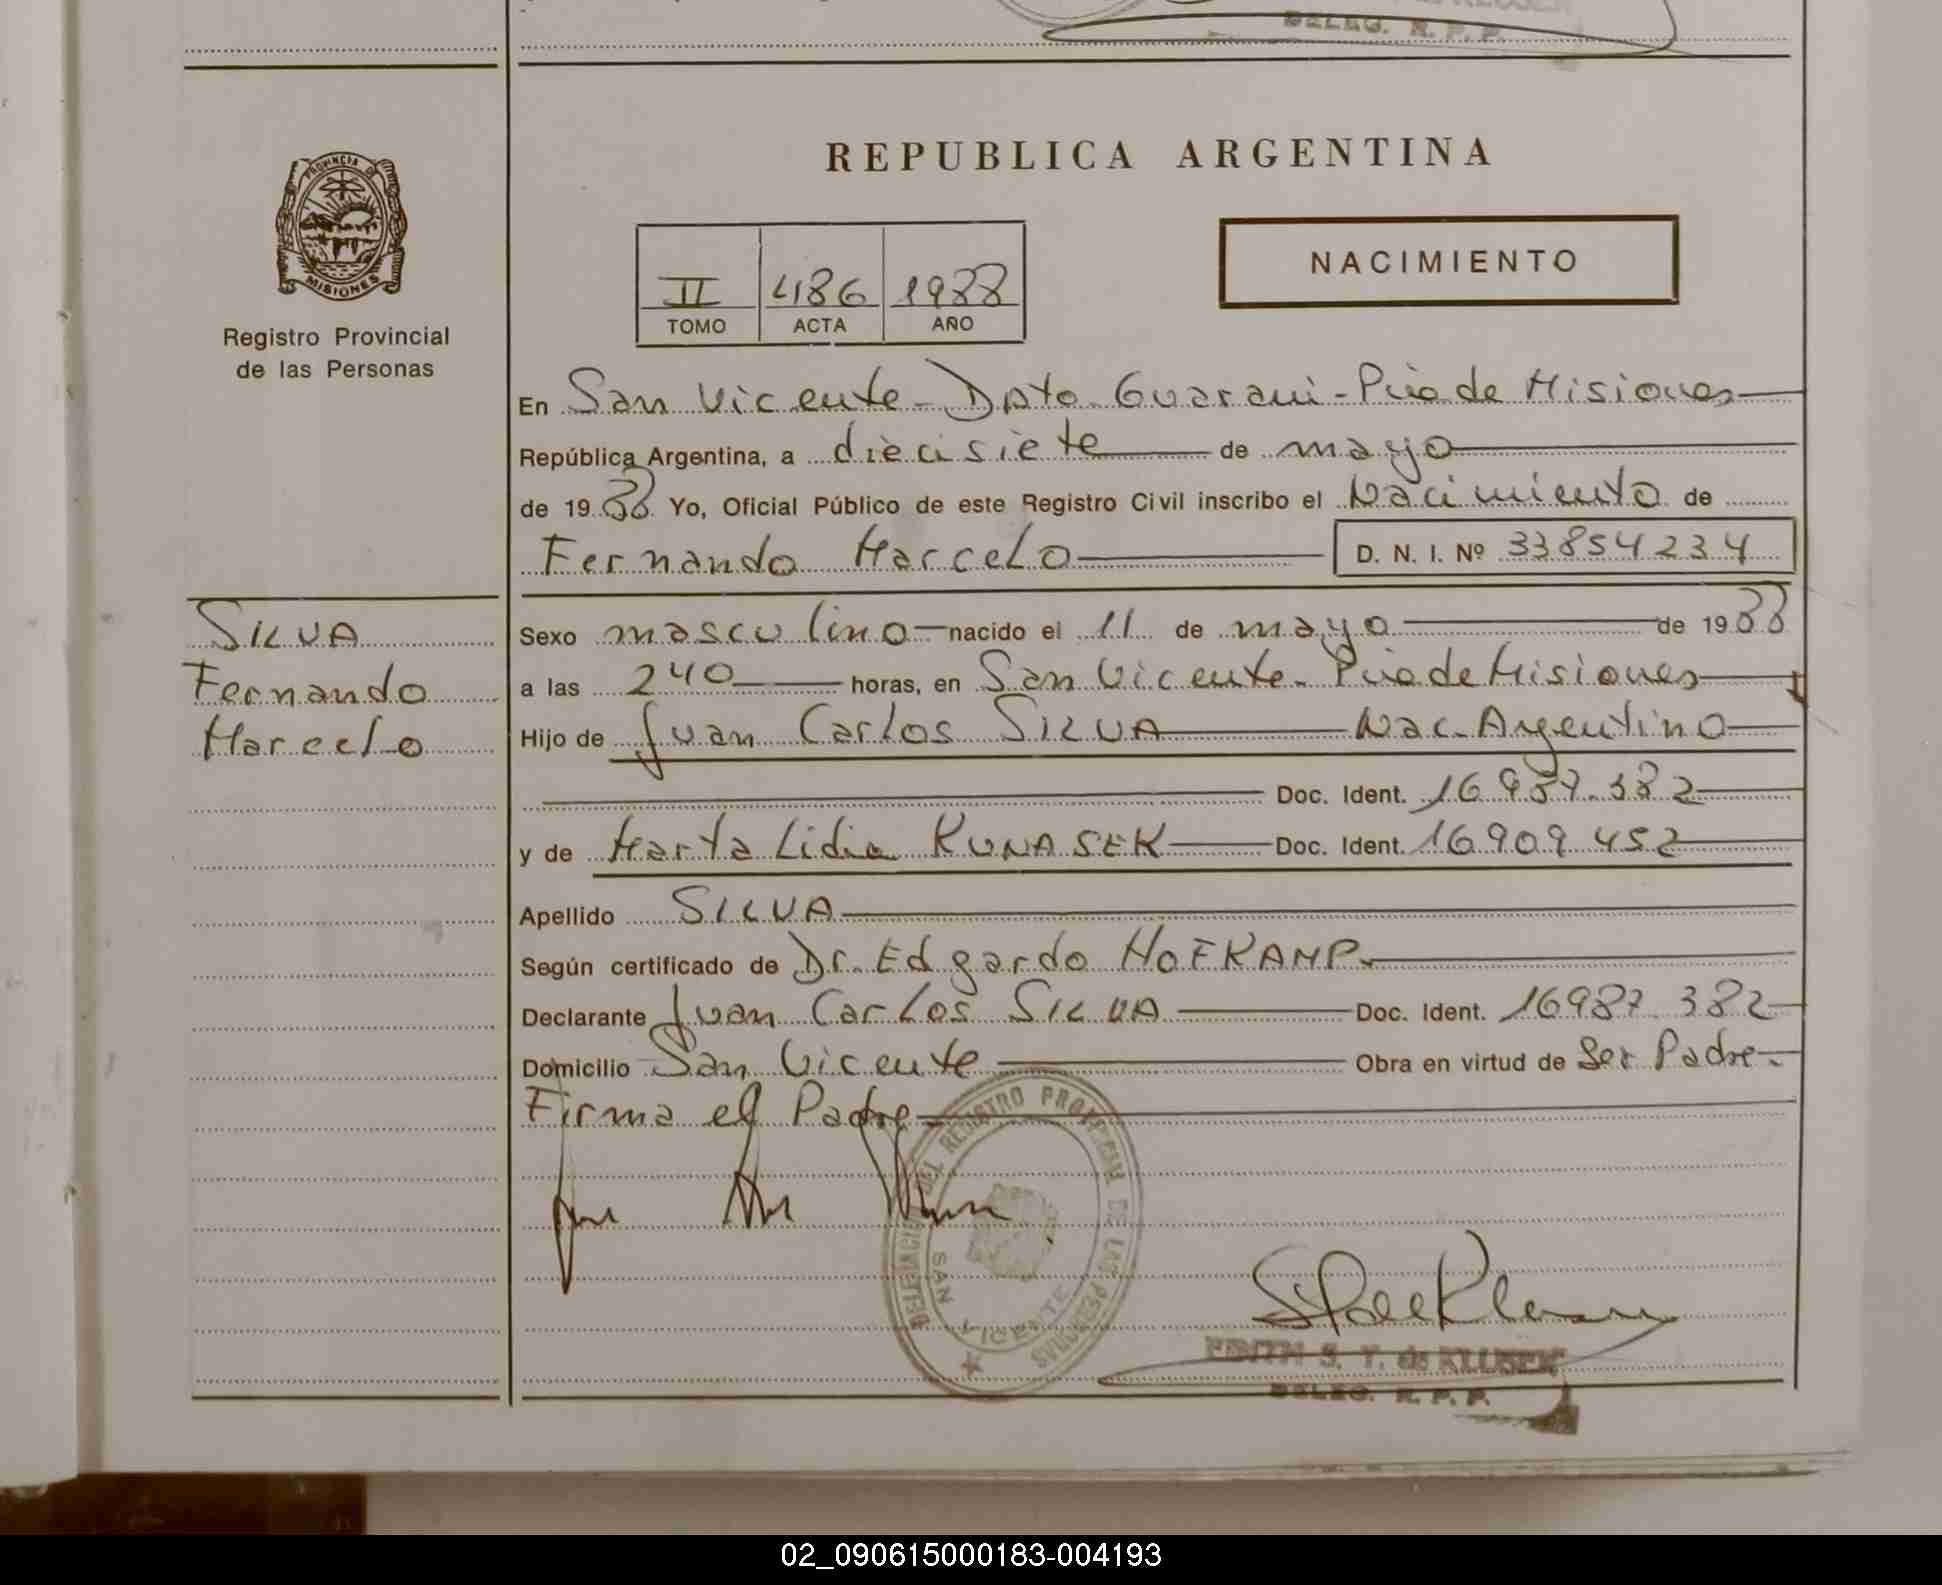 DELEG. R. P. P.
REPUBLICA ARGENTINA
PROVINCIA DE
MISIONES
Registro Provincial
de las Personas
II 486 1988
TOMO ACTA AÑO
NACIMIENTO
En San Vicente - Dpto. Guarani - Pcia de Misiones
República Argentina, a diecisiete de mayo
de 1988 Yo, Oficial Público de este Registro Civil inscribo el Nacimiento de
Fernando Marcelo D. N. I. Nº 33854234
SILVA
Fernando
Marcelo
Sexo masculino nacido el 11 de mayo de 1988
a las 240 horas, en San Vicente - Pcia de Misiones
Hijo de Juan Carlos SILVA Nac. Argentino
Doc. Ident. 16.987.382
y de Marta Lidia KUNASEK Doc. Ident. 16909452
Apellido SILVA
Según certificado de Dr. Edgardo HOFKAMP.
Declarante Juan Carlos SILVA Doc. Ident. 16987.382
Domicilio San Vicente Obra en virtud de Ser Padre.
Firma el Padre
DELEGACION DEL REGISTRO PROVINCIAL DE LAS PERSONAS
SAN VICENTE
EDITH S. T. de KLUSER
DELEG. R. P. P.
02_090615000183-004193